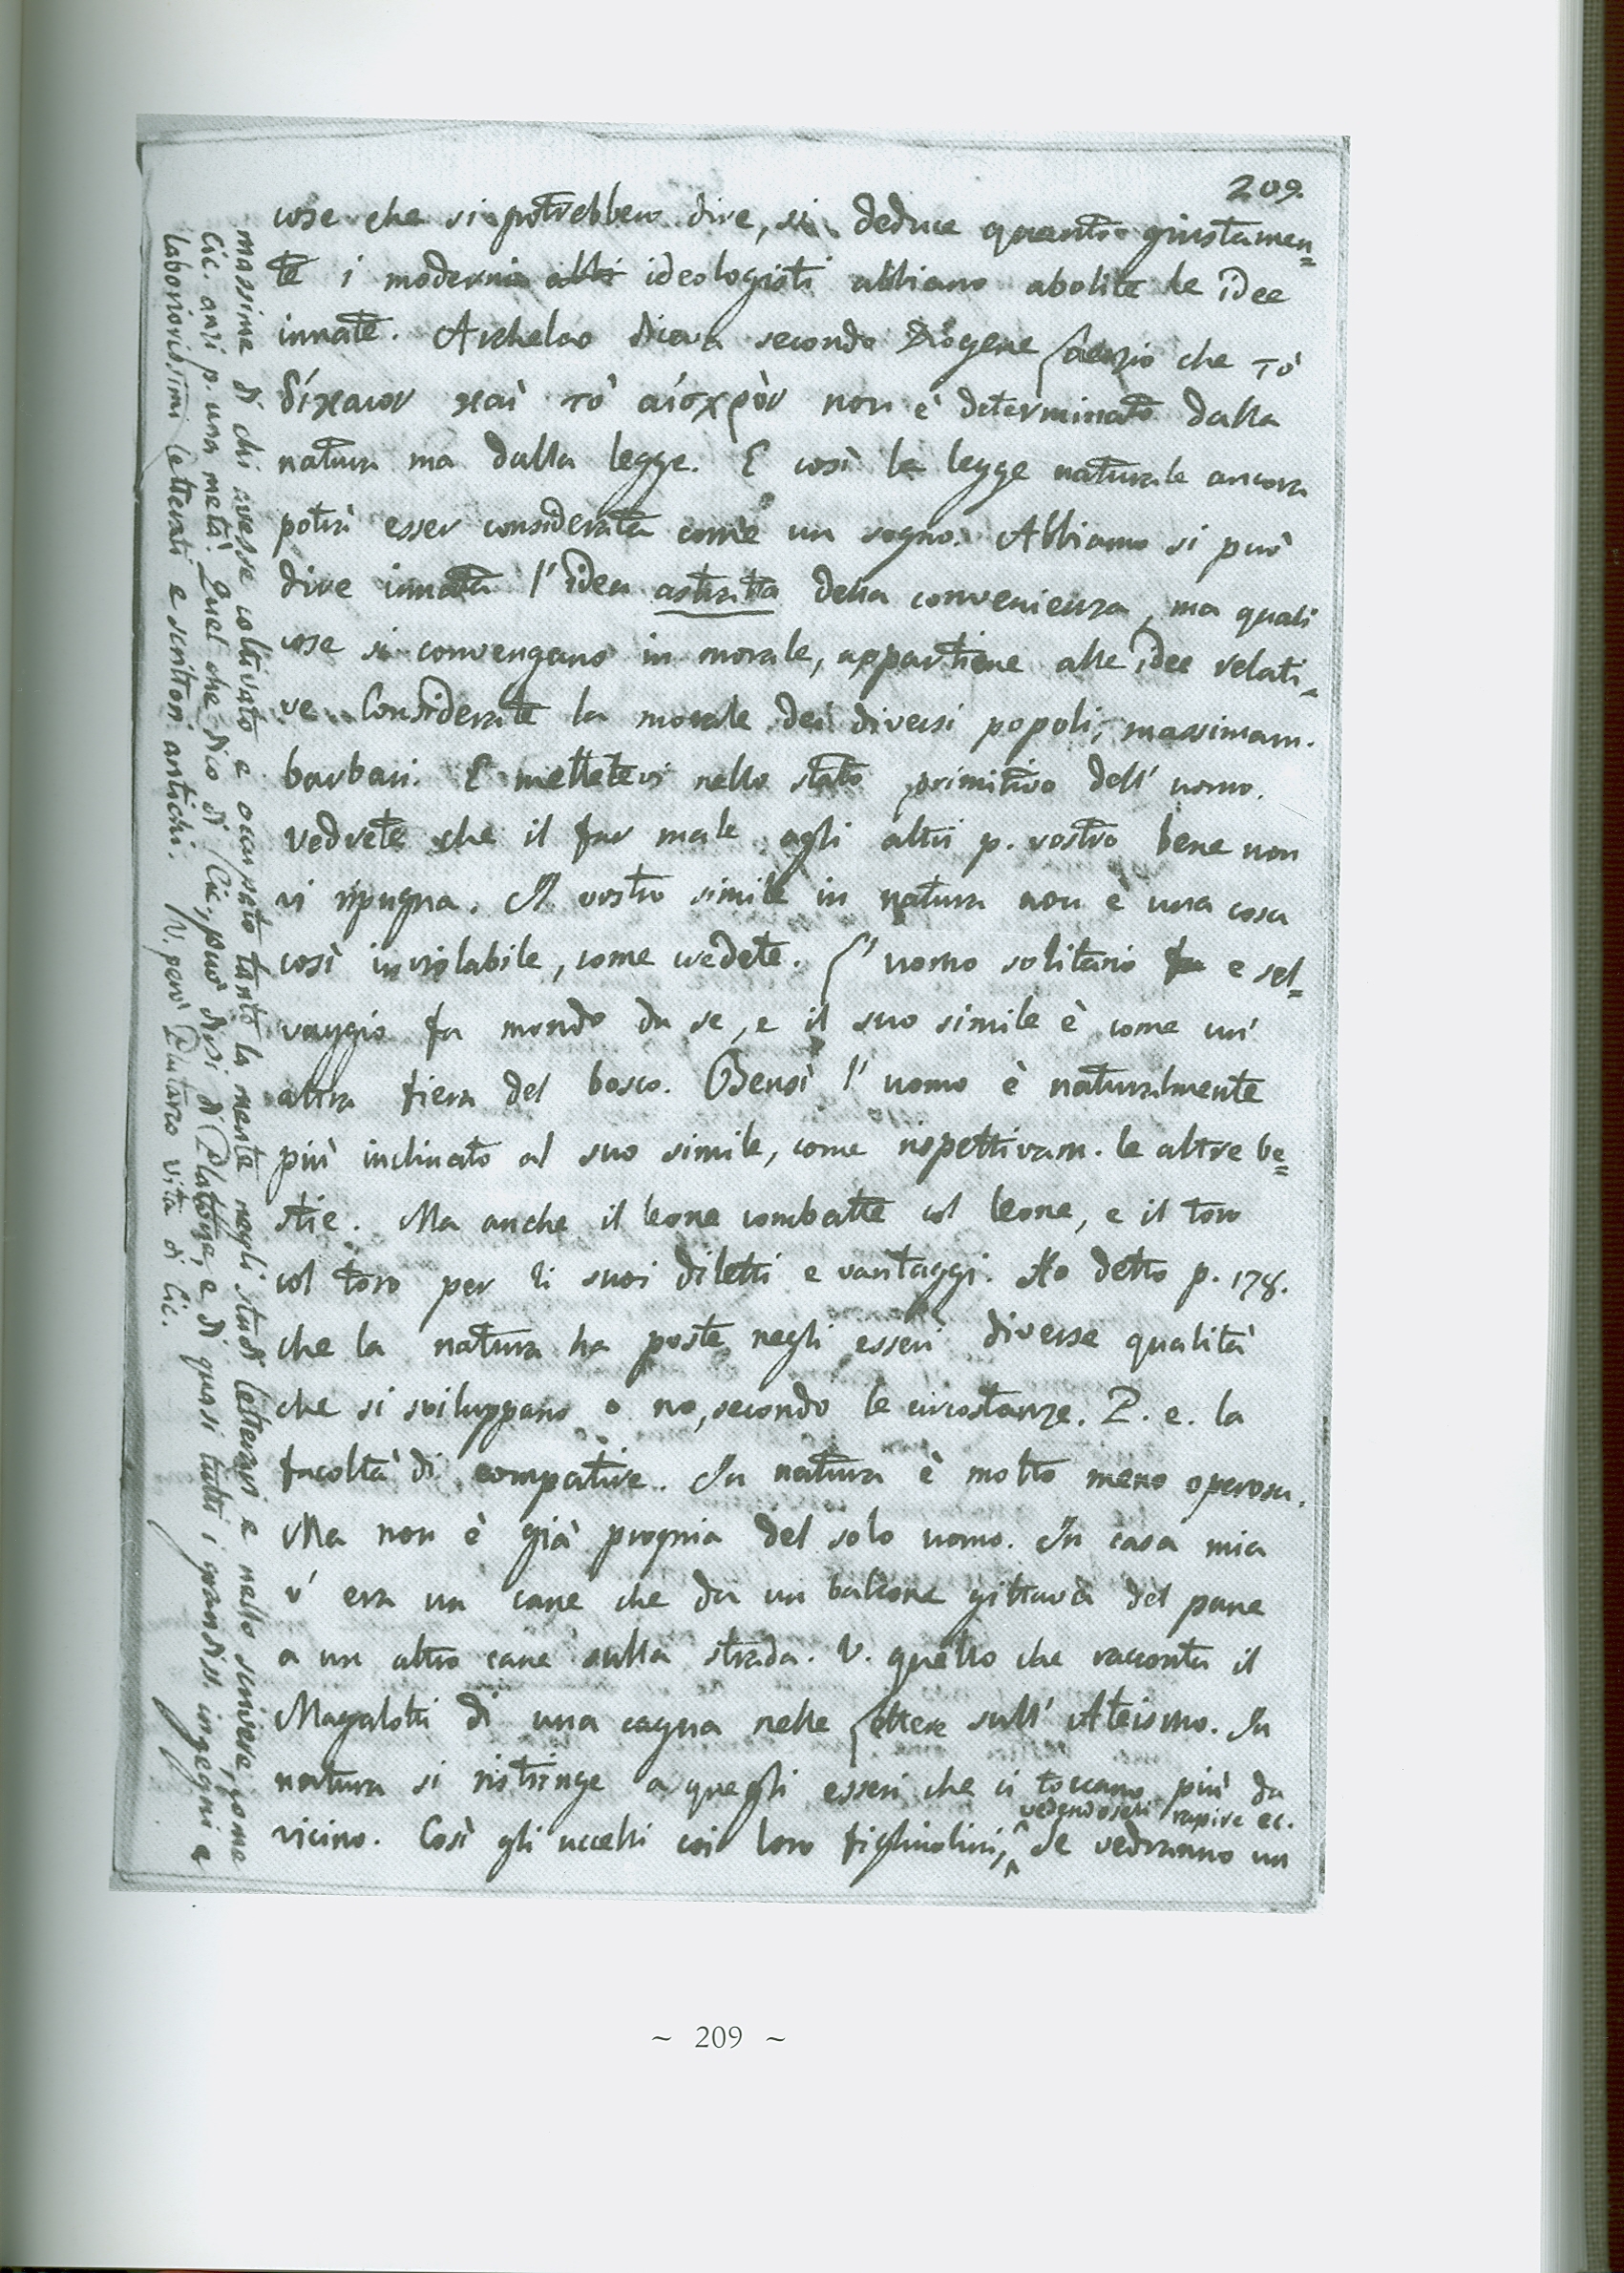 209.
cose che si potrebbero dire, si deduce quanto giustamen=
te i moderni abbi ideologisti abbiano abolite le idee
innate. Archelao diceva secondo Diogene Laerzio che τὸ
δίκαιον καὶ τὸ αἰσχρὸν non è determinato dalla
natura ma dalla legge. E così la legge naturale ancora
potrà esser considerata come un sogno. Abbiamo si può
dire innata l' idea astratta della convenienza, ma quali
cose si convengano in morale, appartiene alle idee relati=
ve. Considerate la morale dei diversi popoli, massimam.
barbari. E mettetevi nello stato primitivo dell' uomo.
Vedrete che il far male agli altri p. vostro bene non
vi ripugna. Il vostro simile in natura non è una cosa
così inviolabile, come credete. L' uomo solitario fa e sel=
vaggio fa mondo da se, e il suo simile è come un'
altra fiera del bosco. Bensì l' uomo è naturalmente
più inclinato al suo simile, come rispettivam. le altre be=
stie. Ma anche il leone combatte col leone, e il toro
col toro per li suoi diletti e vantaggi. Ho detto p. 178.
che la natura ha poste negli esseri diverse qualità
che si sviluppano o no, secondo le circostanze. P. e. la
facoltà di compatire. In natura è molto meno operosa.
Ma non è già propria del solo uomo. In casa mia
v' era un cane che da un balcone gittava del pane
a un altro cane sulla strada. V. quello che racconta il
Magalotti di una cagna nelle Lettere sull' Ateismo. In
natura si ristringe a quegli esseri che ci toccano più da
vedendoseli rapire ec.
vicino. Così gli uccelli coi loro figliuolini, ^ Se vedranno un
massime di chi avesse coltivato e occupato tanto la mente negli studi letterari e nello scrivere, come
Cic. anzi p. una metà. Quel che dico di Cic. può dirsi di Platone, e di quasi tutti i grandiss. ingegni e
laboriosissimi letterati e scrittori antichi. V. però Plutarco vita di Cic.
~ 209 ~